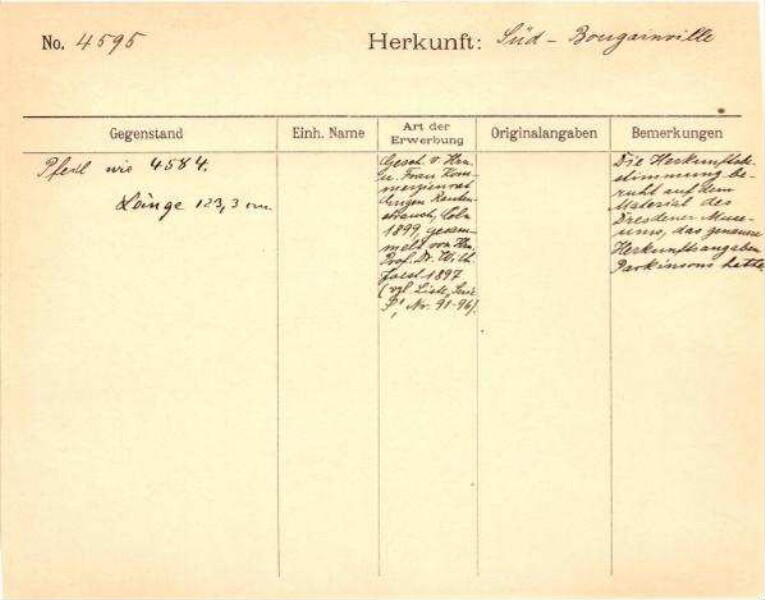 No. 4595 Herkunft: Süd - Bougainville
Gegenstand
Einh. Name
Art der
Erwerbung
Originalangaben
Bemerkungen
Pfeil wie 4584.
Länge 123,3 cm.
Gesch. v. Hrn.
u. Frau Kom-
merzienrat
Eugen Rauten-
strauch, Cöln
1899, gesam-
melt von Hrn.
Prof. Dr. Wilh.
Joest 1897
(vgl. Liste, Serie
P, Nr. 91-96).
Die Herkunftsbe-
stimmung be-
ruht auf dem
Material des
Dresdener Muse-
ums, das genauere
Herkunftsangaben
Parkinsons hatte.